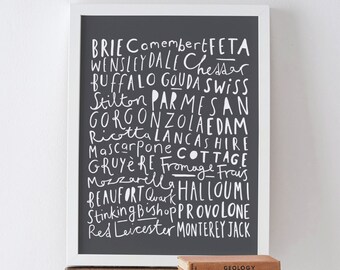 BRIE Camembert FETA
WENSLEYDALE Cheddar
BUFFALO GOUDA SWISS
Stilton PARMESAN
GORGONZOLA EDAM
Ricotta LANCASHIRE
Mascarpone COTTAGE
GRUYÈRE Fromage Frais
Mozzarella HALLOUMI
BEAUFORT Quark
Stinking Bishop PROVOLONE
Red Leicester MONTEREY JACK
GEOLOGY